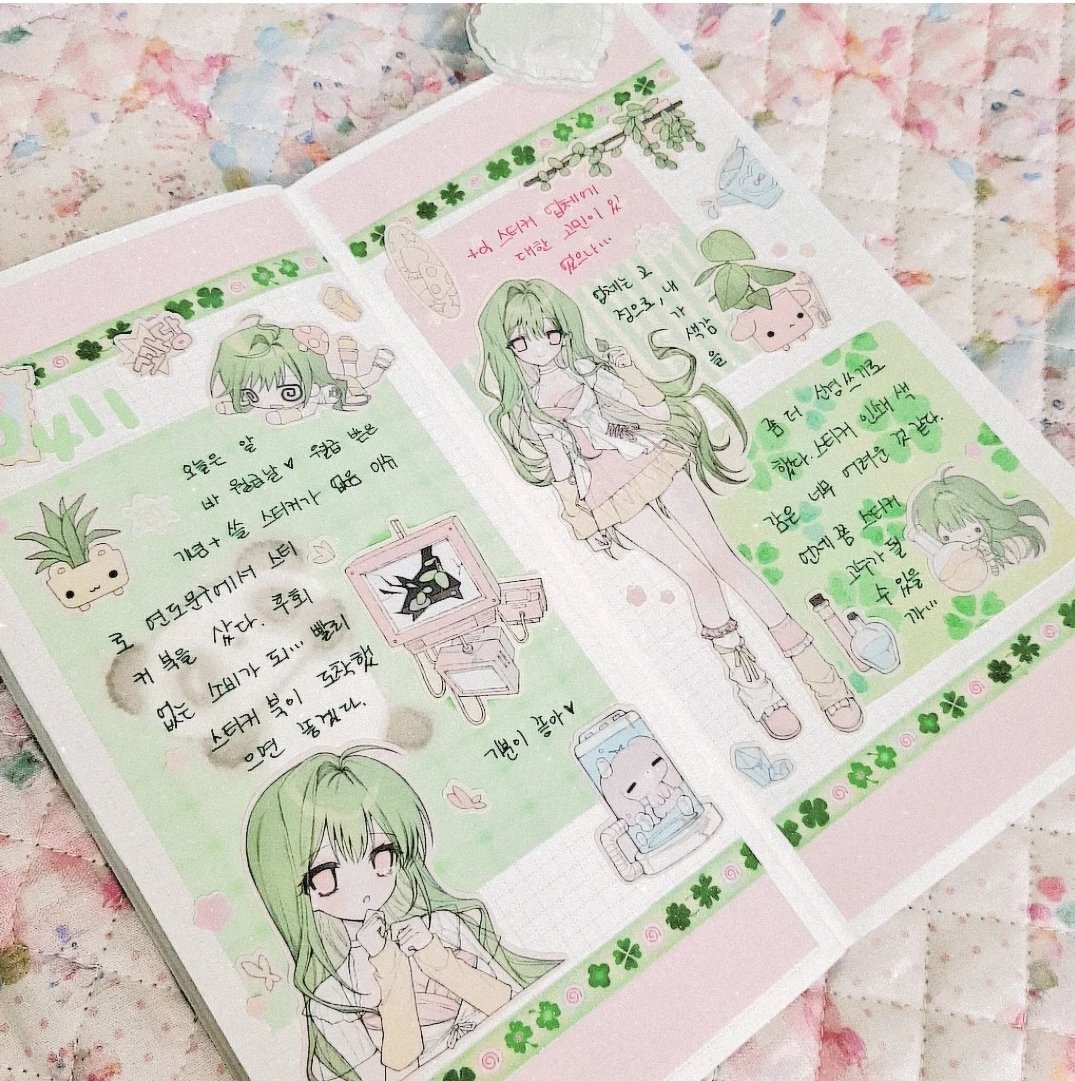 0411
오늘은 알
바 월급날♥ 월급 받은
기념 + 쓸 스티커가 없음 이슈
로 연도문구에서 스티
커 북을 샀다. 후회
없는 소비가 되... 빨리
스티커 북이 도착했
으면 좋겠다.
기분이 좋아♥
+더 스티커 업체에
대한 고민이 있
었으나...
업체는 고
정으로, 내
가 색감
을
좀 더 신경쓰기로
했다. 스티커 인쇄 색
감은 너무 어려운 것 같다.
언제쯤 스티커
고수가 될
수 있을
까...